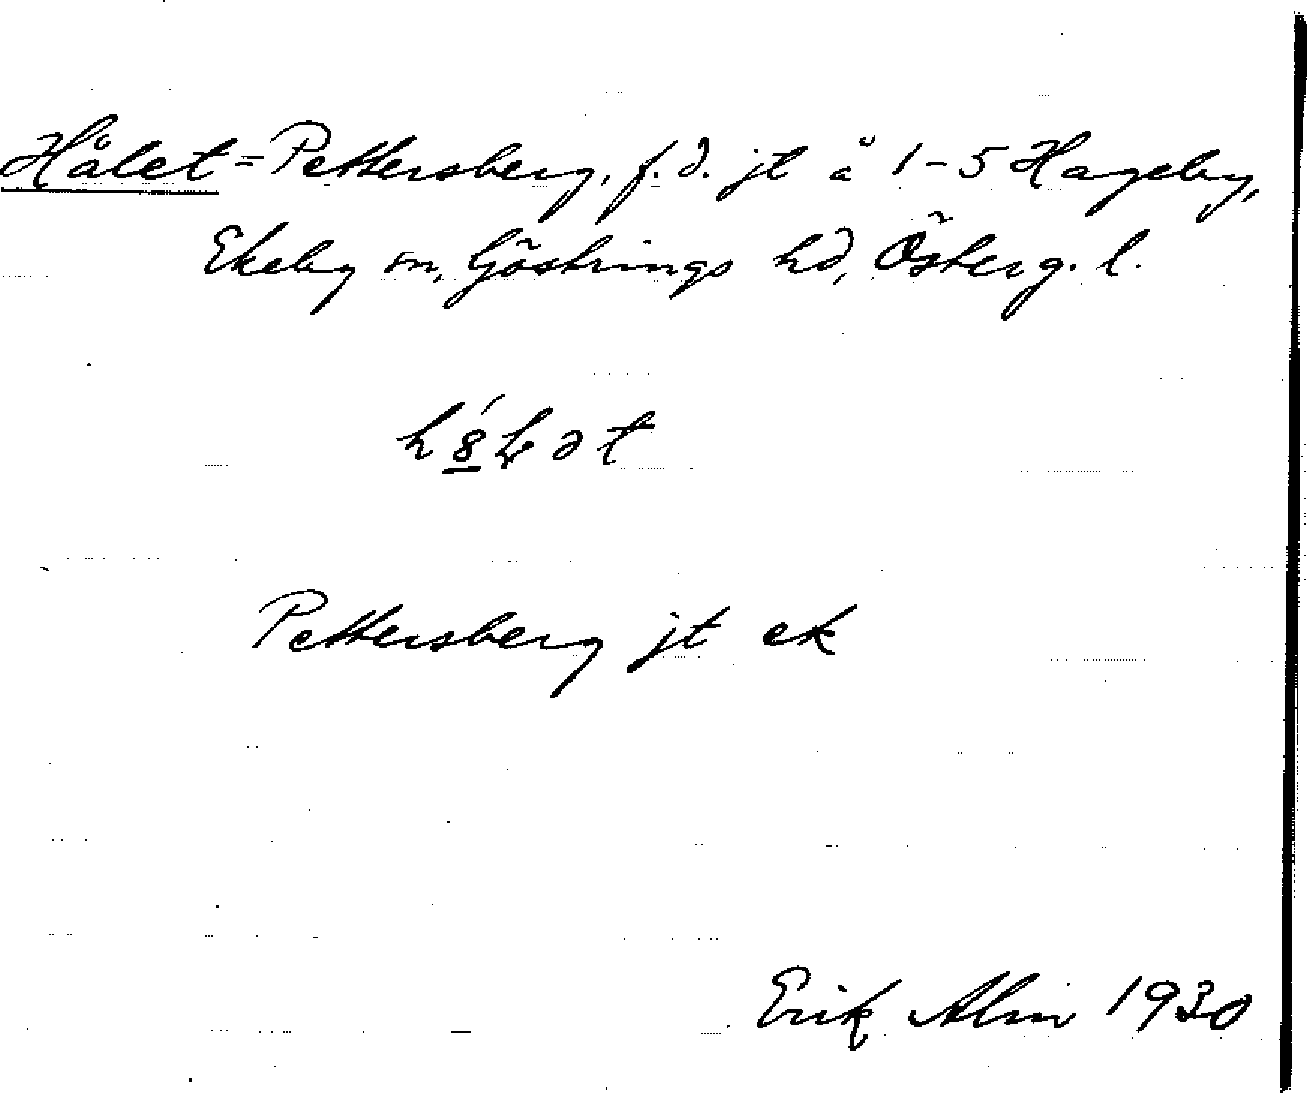 Hålet = Pettersberg, f.d. jt å 1-5 Hageby,
Ekeby sn, Göstrings hd, Österg. l.
Pettersberg jt ek
Erik Alin 1930